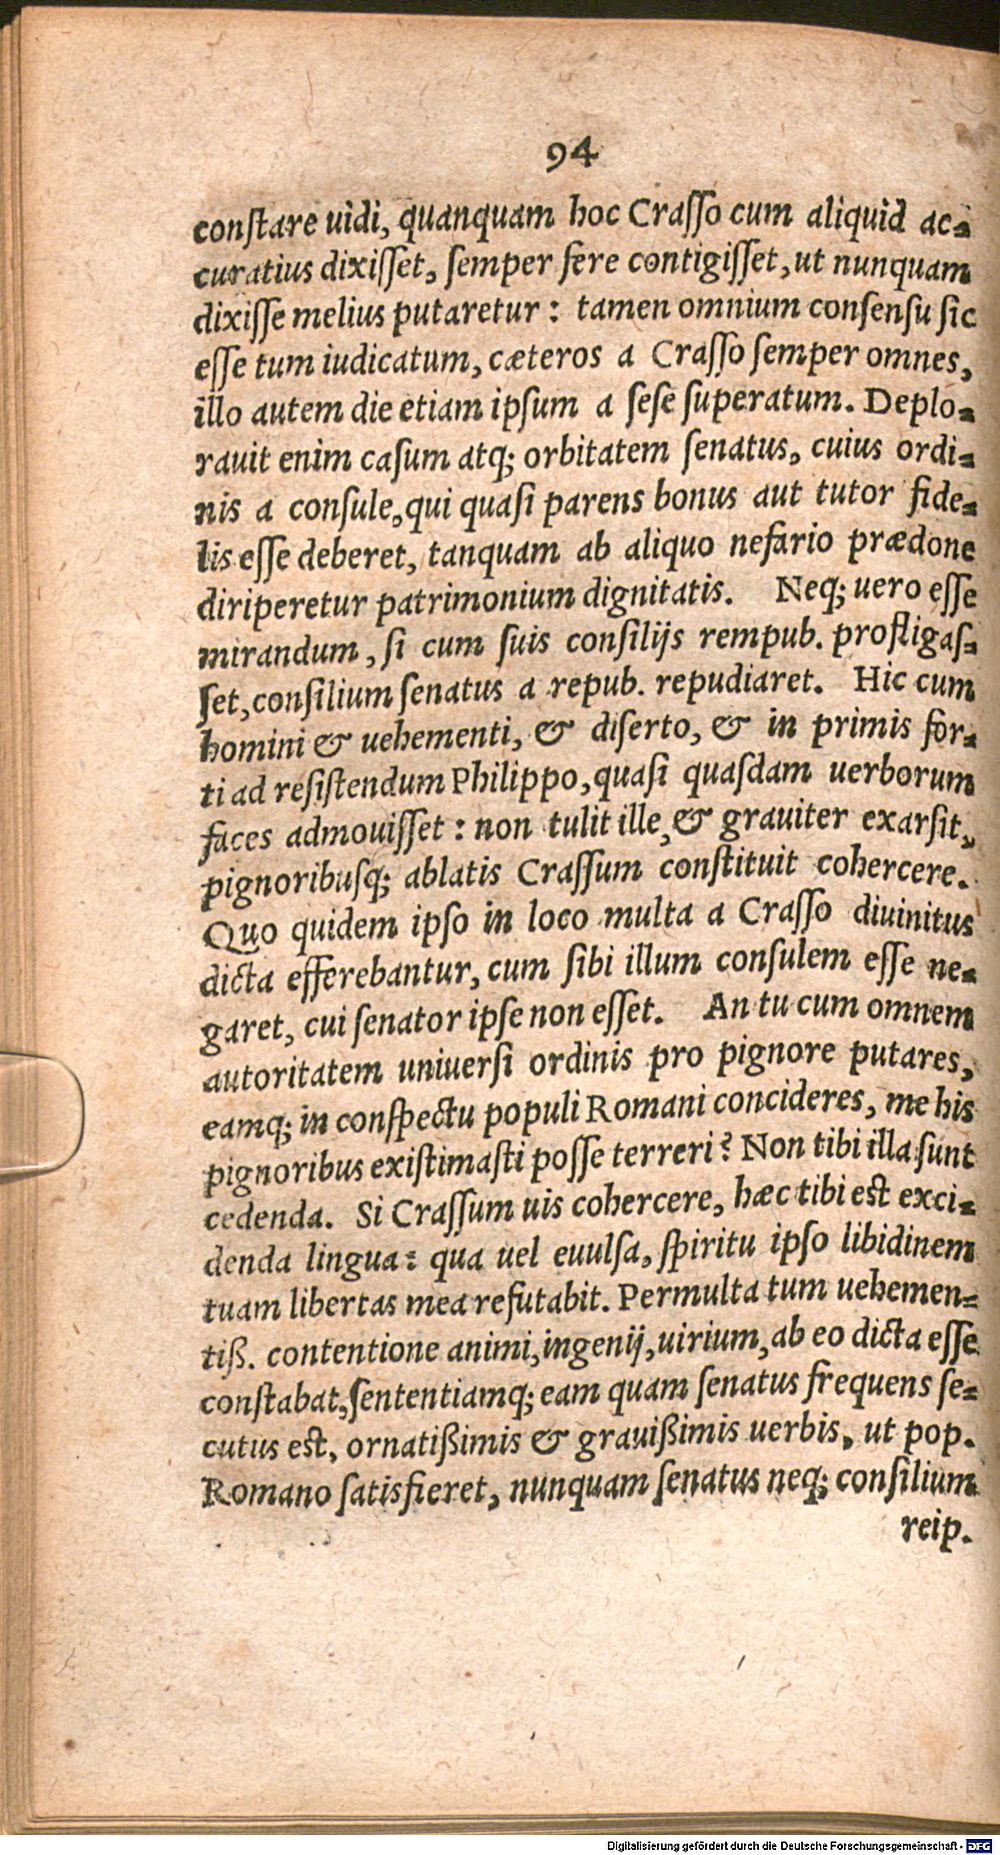 94
conſtare uidi, quanquam hoc Craſſo cum aliquid ac-
curatius dixiſſet, ſemper fere contigiſſet, ut nunquam
dixiſſe melius putaretur: tamen omnium conſenſu ſic
eſſe tum iudicatum, cæteros a Craſſo ſemper omnes,
illo autem die etiam ipſum a ſeſe ſuperatum. Deplo-
rauit enim caſum atq; orbitatem ſenatus, cuius ordi-
nis a conſule, qui quaſi parens bonus aut tutor fide-
lis eſſe deberet, tanquam ab aliquo nefario prædone
diriperetur patrimonium dignitatis. Neq; uero eſſe
mirandum, ſi cum ſuis conſilijs rempub. profligaſ-
ſet, conſilium ſenatus a repub. repudiaret. Hic cum
homini & uehementi, & diſerto, & in primis for-
ti ad reſiſtendum Philippo, quaſi quaſdam uerborum
faces admouiſſet: non tulit ille, & grauiter exarſit,
pignoribuſq; ablatis Craſſum conſtituit cohercere.
Quo quidem ipſo in loco multa a Craſſo diuinitus
dicta efferebantur, cum ſibi illum conſulem eſſe ne-
garet, cui ſenator ipſe non eſſet. An tu cum omnem
autoritatem uniuerſi ordinis pro pignore putares,
eamq; in conſpectu populi Romani concideres, me his
pignoribus exiſtimaſti poſſe terreri? Non tibi illa ſunt
cedenda. Si Craſſum uis cohercere, hæc tibi eſt exci-
denda lingua: qua uel euulſa, ſpiritu ipſo libidinem
tuam libertas mea refutabit. Permulta tum uehemen-
tiß. contentione animi, ingenij, uirium, ab eo dicta eſſe
conſtabat, ſententiamq; eam quam ſenatus frequens ſe-
cutus eſt, ornatißimis & grauißimis uerbis, ut pop.
Romano ſatisfieret, nunquam ſenatus neq; conſilium
reip.
Digitalisierung gefördert durch die Deutsche Forschungsgemeinschaft - DFG